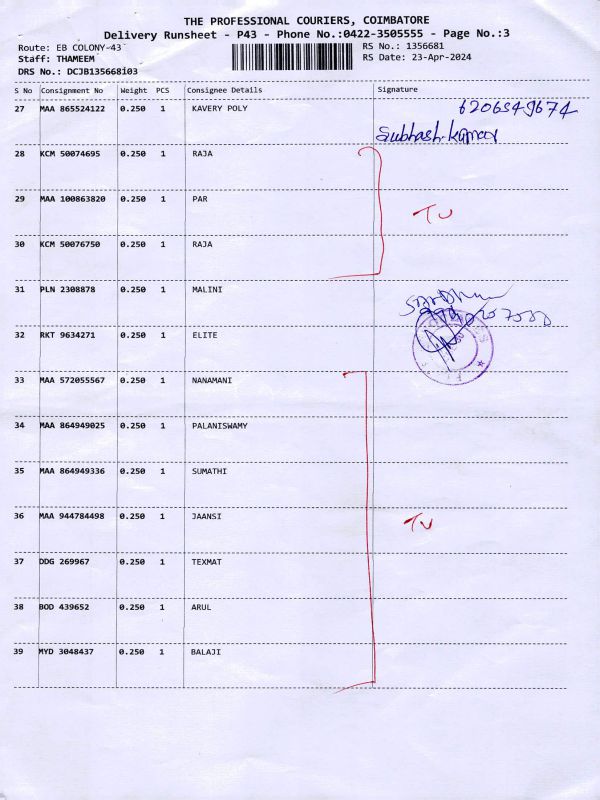 THE PROFESSIONAL COURIERS, COIMBATORE
Delivery Runsheet - P43 - Phone No.:0422-3505555 - Page No.:3
Route: EB COLONY-43 RS No.: 1356681
Staff: THAMEEM RS Date: 23-Apr-2024
DRS No.: DCJB135668103
S No Consignment No Weight PCS Consignee Details Signature
27 MAA 865524122 0.250 1 KAVERY POLY 6206549674
Subhash.kumar
28 KCM 50074695 0.250 1 RAJA
29 MAA 100863820 0.250 1 PAR
TU
30 KCM 50076750 0.250 1 RAJA
31 PLN 2308878 0.250 1 MALINI
32 RKT 9634271 0.250 1 ELITE
33 MAA 572055567 0.250 1 NANAMANI
34 MAA 864949025 0.250 1 PALANISWAMY
35 MAA 864949336 0.250 1 SUMATHI
36 MAA 944784498 0.250 1 JAANSI TU
37 DDG 269967 0.250 1 TEXMAT
38 BOD 439652 0.250 1 ARUL
39 MYD 3048437 0.250 1 BALAJI